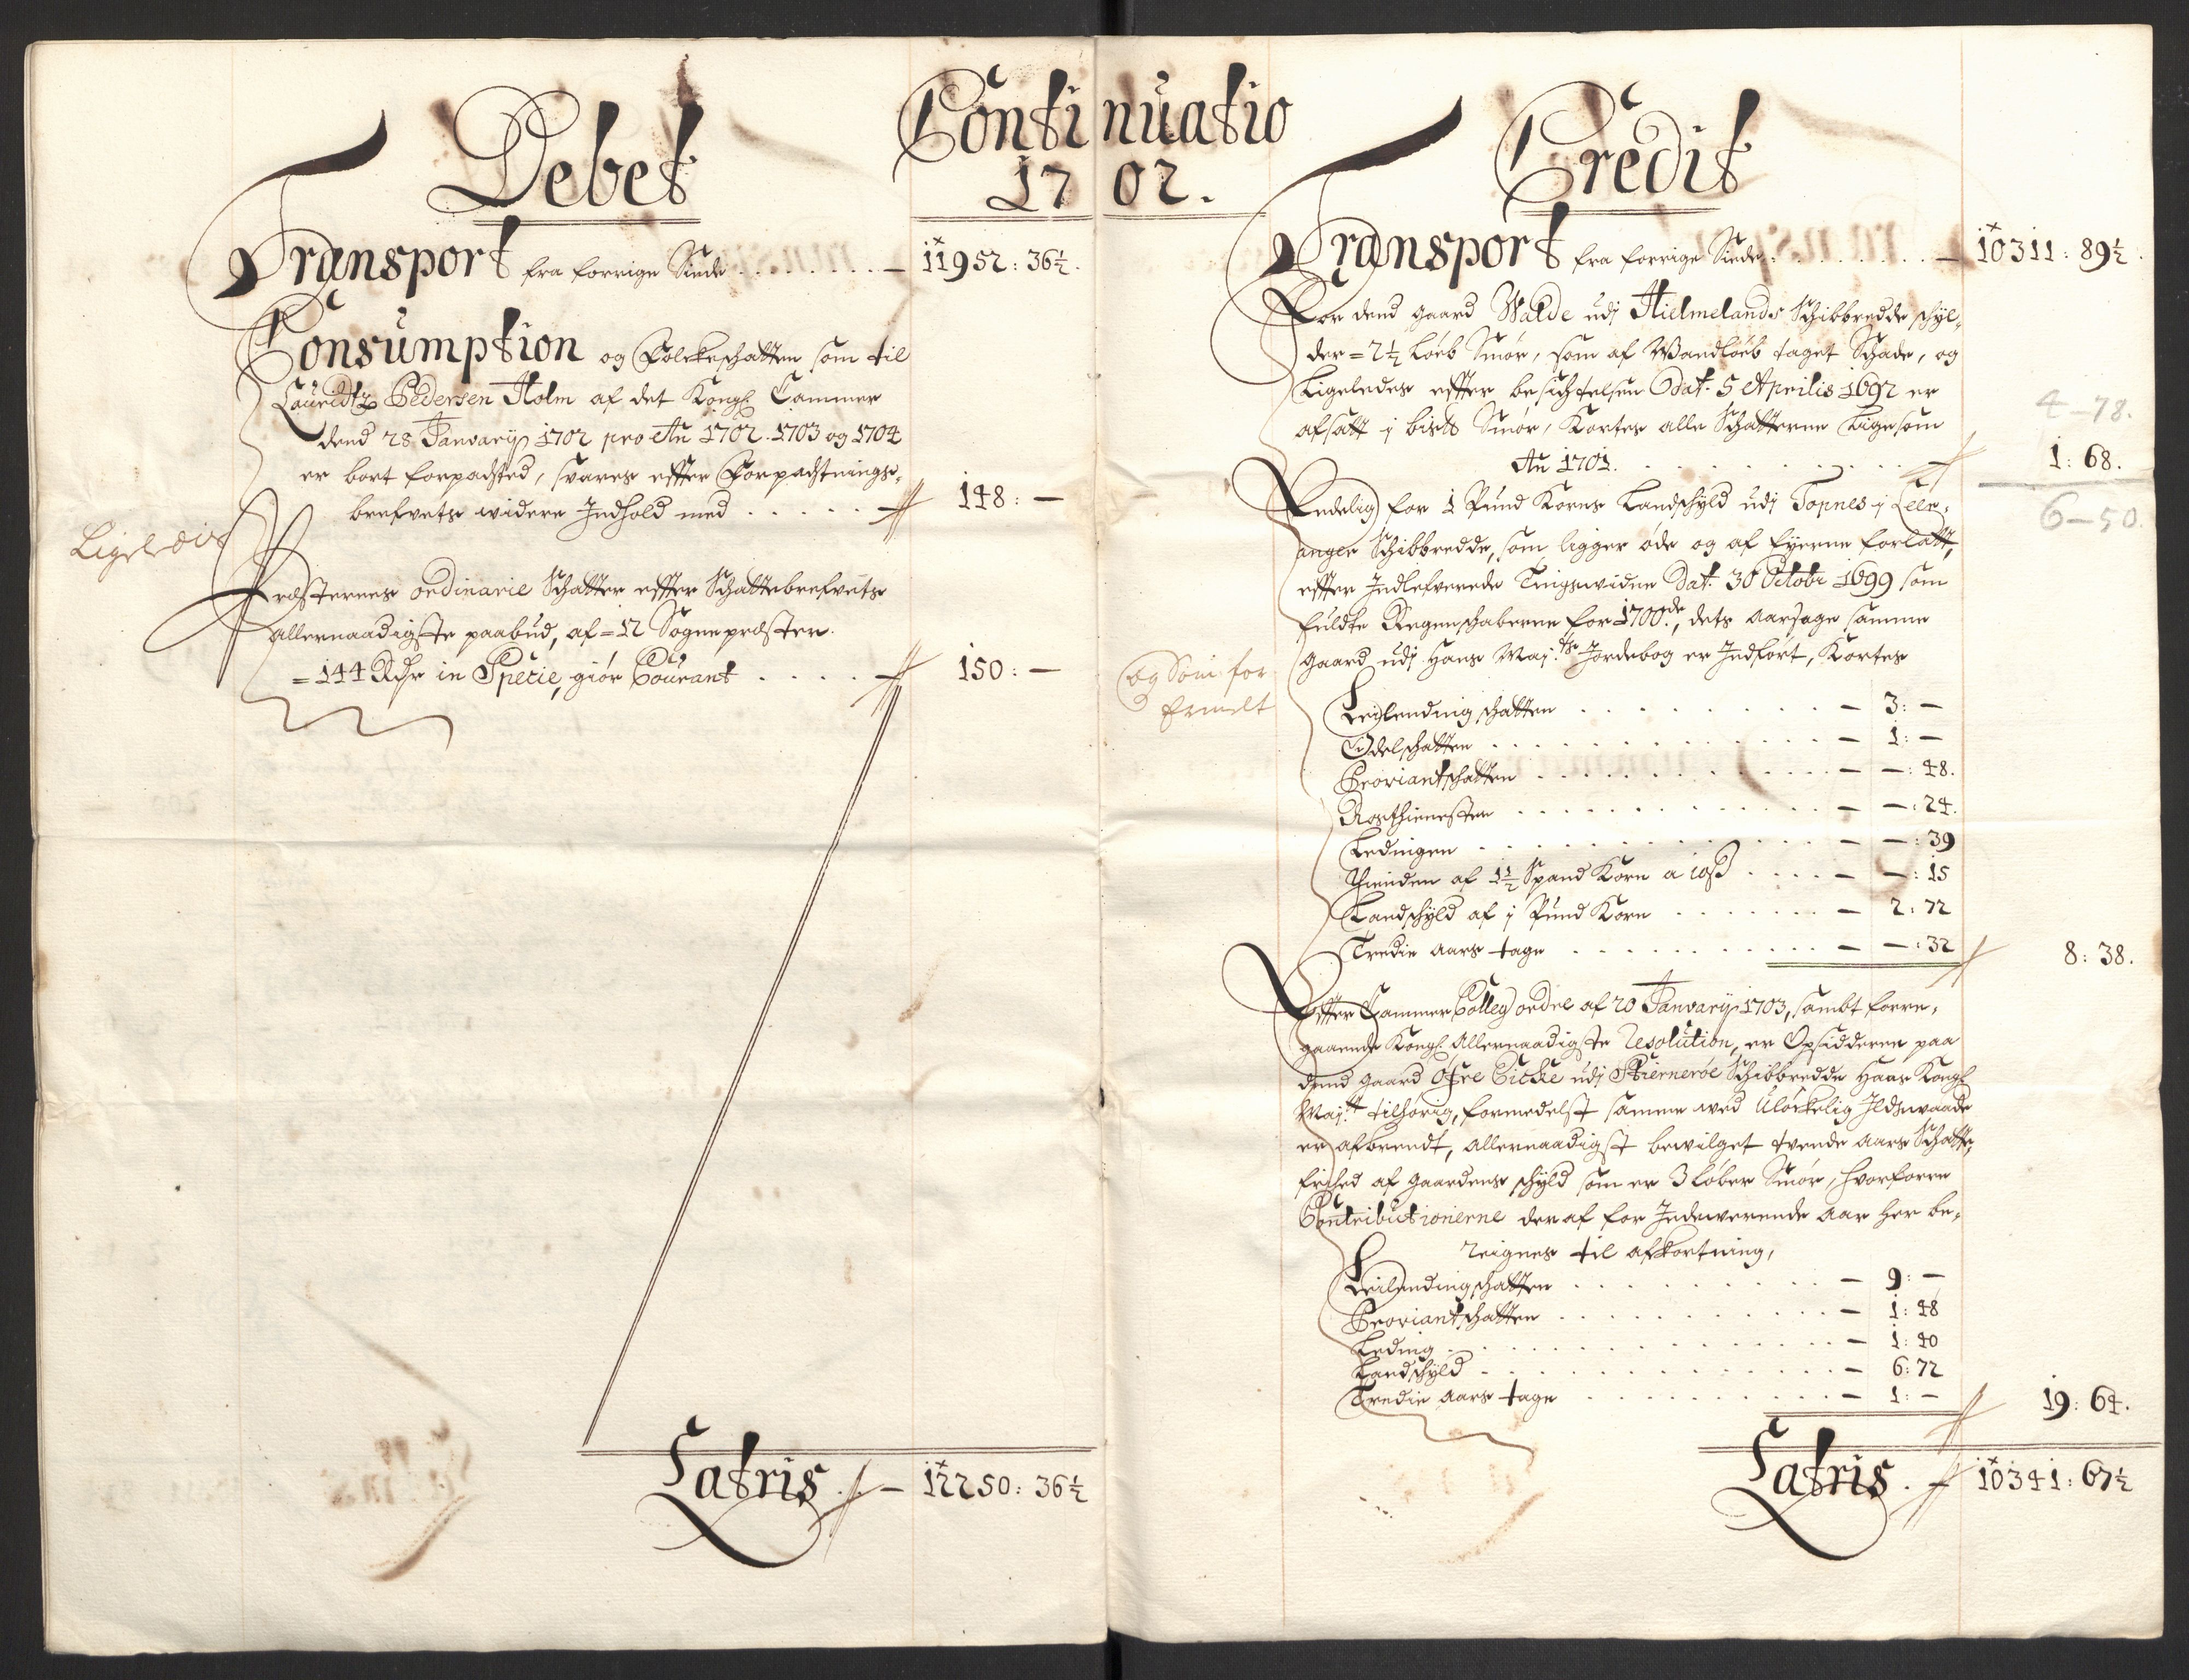 Continuatio
1702.
Debet
Transport fra forrige Siude . . . . . . . . — 11952: 36½.
Consumption og Folckeschatten som til
Lauridtz Pedersen Holm af det Kongl: Cammer
dend 28 Januarij 1702 pro Ao 1702. 1703 og 1704
er bort forpachted, svares effter Forpachtnings-
brefvets widere Indhold med . . . . . 148: —
Ligeledis
Præsternes ordinarie Schatter effter Schattebrefvets
allernaadigste paabud, af = 12 Sogneprester.
= 144 Rdr in Specie, giør Courant . . . . — 150: —
Latris . — 12250: 36½
Credit
Transport fra forrige Siude . . . . . . . . — 10311: 89½.
For dend gaard Walde udj Hielmelands Schibbredde schyl-
der = 2½ Løeb Smør, som af Wandløeb taget Schade, og
Ligeledes effter besichtelsen Dat. 5 Aprilis 1692 er
afsatt j bists Smør, Kortes alle Schatterne Ligesom
4 — 78.
Ao 1701. . . . . . . . . . 1: 68.
6 — 50.
Endelig for 1 Pund Korns Landschyld udj Topnes j Leer-
anger Schibbredde, som ligger øde og af Eyerne forlatt,
effter Indlefverede Tingswidne Dat. 30 Octobr 1699 som
fuldte Regenschaberne for 1700de, dets aarsage samme
gaard udj Hans Maj:ts Jordebog er Indført, Kortes
og Som for
Ermelt
Leylendingschatten . . . . . . . . — 3: —
Odelschatten . . . . . . . . — 1: —
Proviantschatten . . . . . . . . — —: 48.
Rosthienesten . . . . . . . . — —: 24.
Ledingen . . . . . . . . — —: 39
Thienden af 1½ Spand Korn a 10ß . . . . — —: 15
Landschyld af j Pund Korn . . . . . . — 2: 72
Tredie aars tage . . . . . . . . — —: 32 8: 38.
Effter Cammer Colleg ordre af 20 Januarij 1703, sambt forre-
gaaende Kongl: Allernaadigste Resolution, er Opsidderen paa
dend gaard Ofre Eicke udj Stiernerøe Schibbredde Hans Kongl:
Maj:tt tilhørig, formedelst samme wed Uløckelig Ildswaade
er afbrendt, allernaadigst bewilget tvende aars Schatte-
frihed af gaardens schyld som er 3 Løber Smør, hvorforre
Contributionerne deraf for Indewerende Aar her be-
reignes til afkortning,
Leilendingschatten . . . . . . . . — 9: —
Proviantschatten . . . . . . . . — 1: 48
Leding . . . . . . . . — 1: 40
Landschyld . . . . . . . . — 6: 72
Tredie aars tage . . . . . . . . — 1: — 19: 64.
Latris . — 10341: 67½